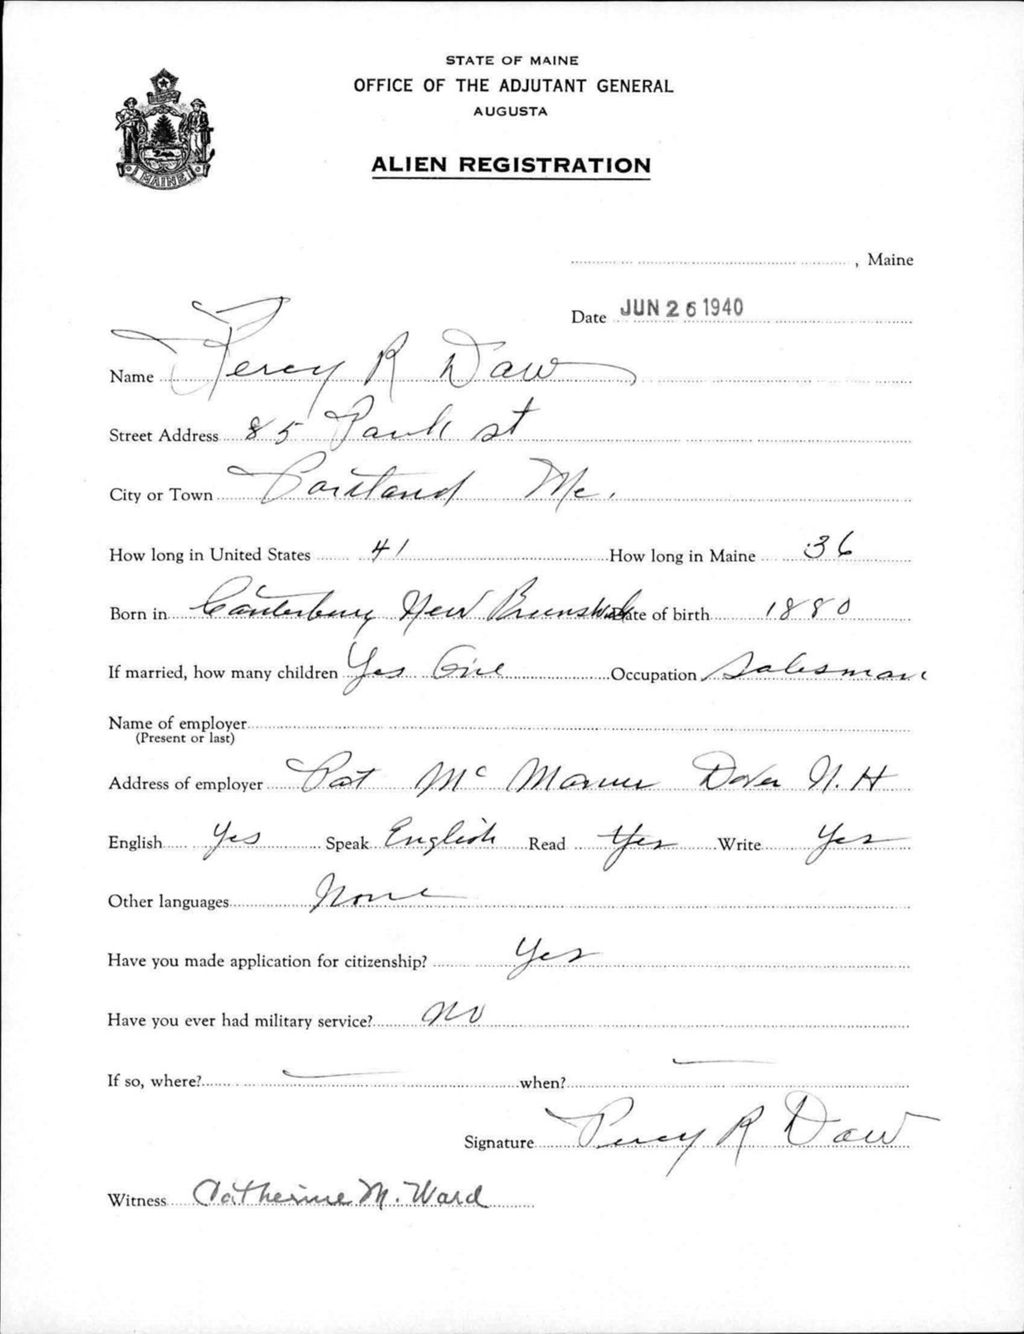 STATE OF MAINE
OFFICE OF THE ADJUTANT GENERAL
AUGUSTA
ALIEN REGISTRATION
MAINE
, Maine
Date JUN 26 1940
Name Percy R Daw
Street Address 85 Park st
City or Town Portland Me.
How long in United States 41 How long in Maine 36
Born in Canterbury New Brunswick Date of birth 1880
If married, how many children Yes One Occupation Salesman
Name of employer
(Present or last)
Address of employer Pat Mc Manus Dover N.H
English Yes Speak English Read Yes Write Yes
Other languages None
Have you made application for citizenship? Yes
Have you ever had military service? No
If so, where? — when? —
Signature Percy R Daw
Witness Catherine M. Ward